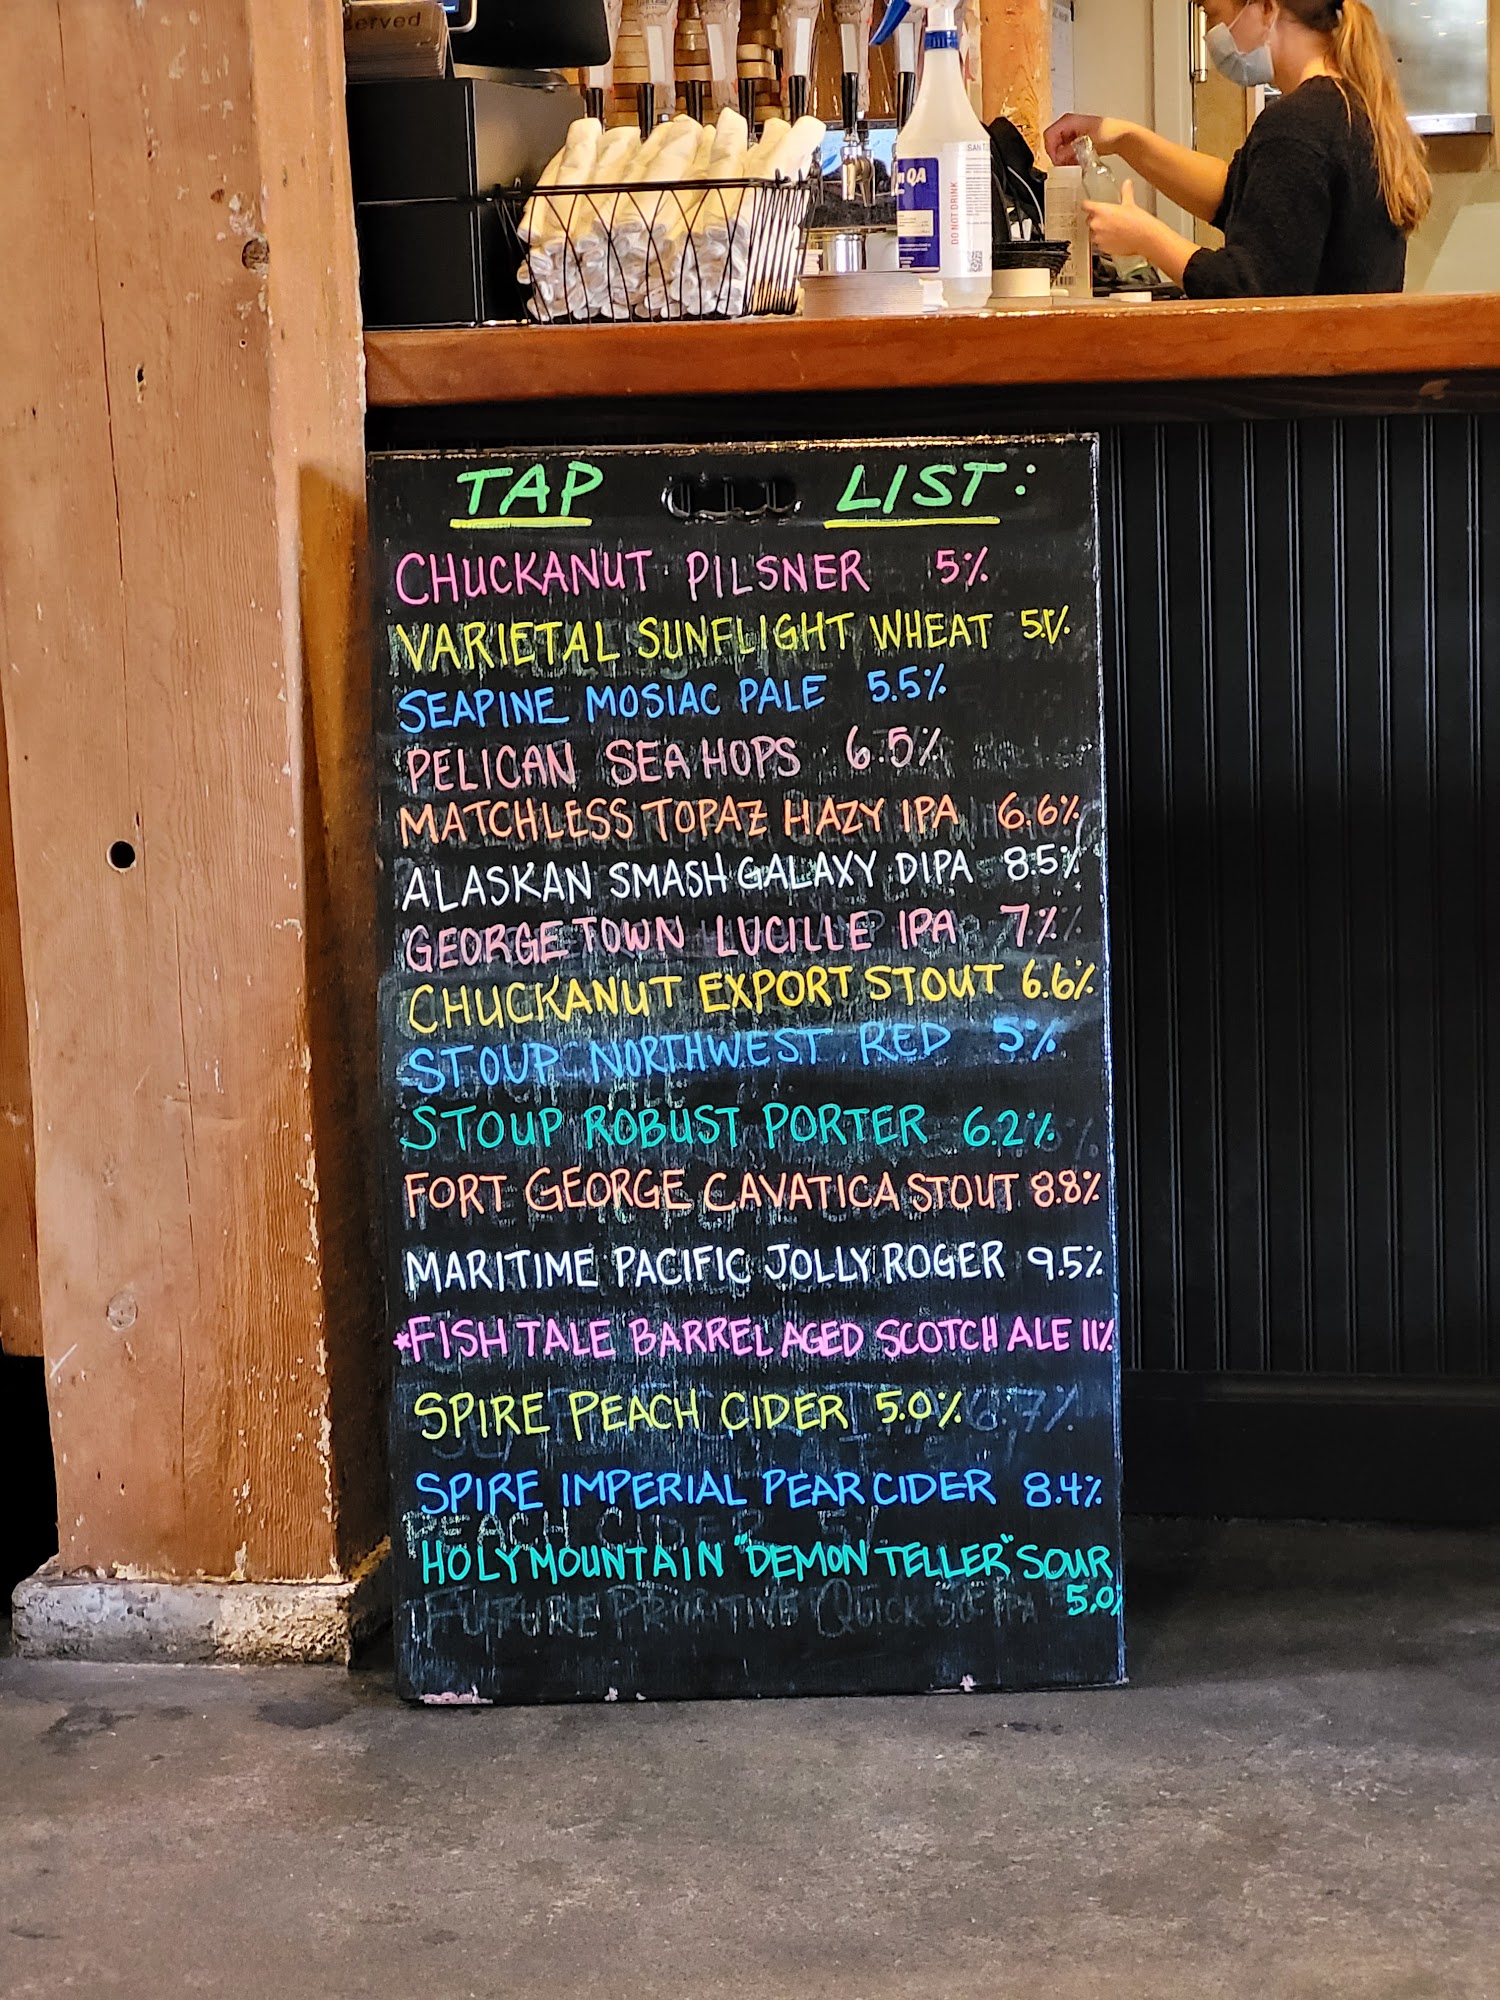 served
n QA
DO NOT DRINK
TAP LIST:
CHUCKANUT PILSNER 5%
VARIETAL SUNFLIGHT WHEAT
SEAPINE MOSIAC PALE 5.5%
PELICAN SEA HOPS 6.5%
MATCHLESS TOPAZ HAZY IPA 6.6%
ALASKAN SMASH GALAXY DIPA 8.5%
GEORGETOWN LUCILLE IPA 7%
CHUCKANUT EXPORT STOUT 6.6%
STOUP NORTHWEST RED 5%
STOUP ROBUST PORTER 6.2%
FORT GEORGE CAVATICA STOUT 8.8%
MARITIME PACIFIC JOLLY ROGER 9.5%
*FISH TALE BARREL AGED SCOTCH ALE 11%
SPIRE PEACH CIDER 5.0% 6.7%
SPIRE IMPERIAL PEAR CIDER 8.4%
PEACH CIDER
HOLY MOUNTAIN "DEMON TELLER" SOUR
5.0%
FUTURE PRIMITIVE QUICK